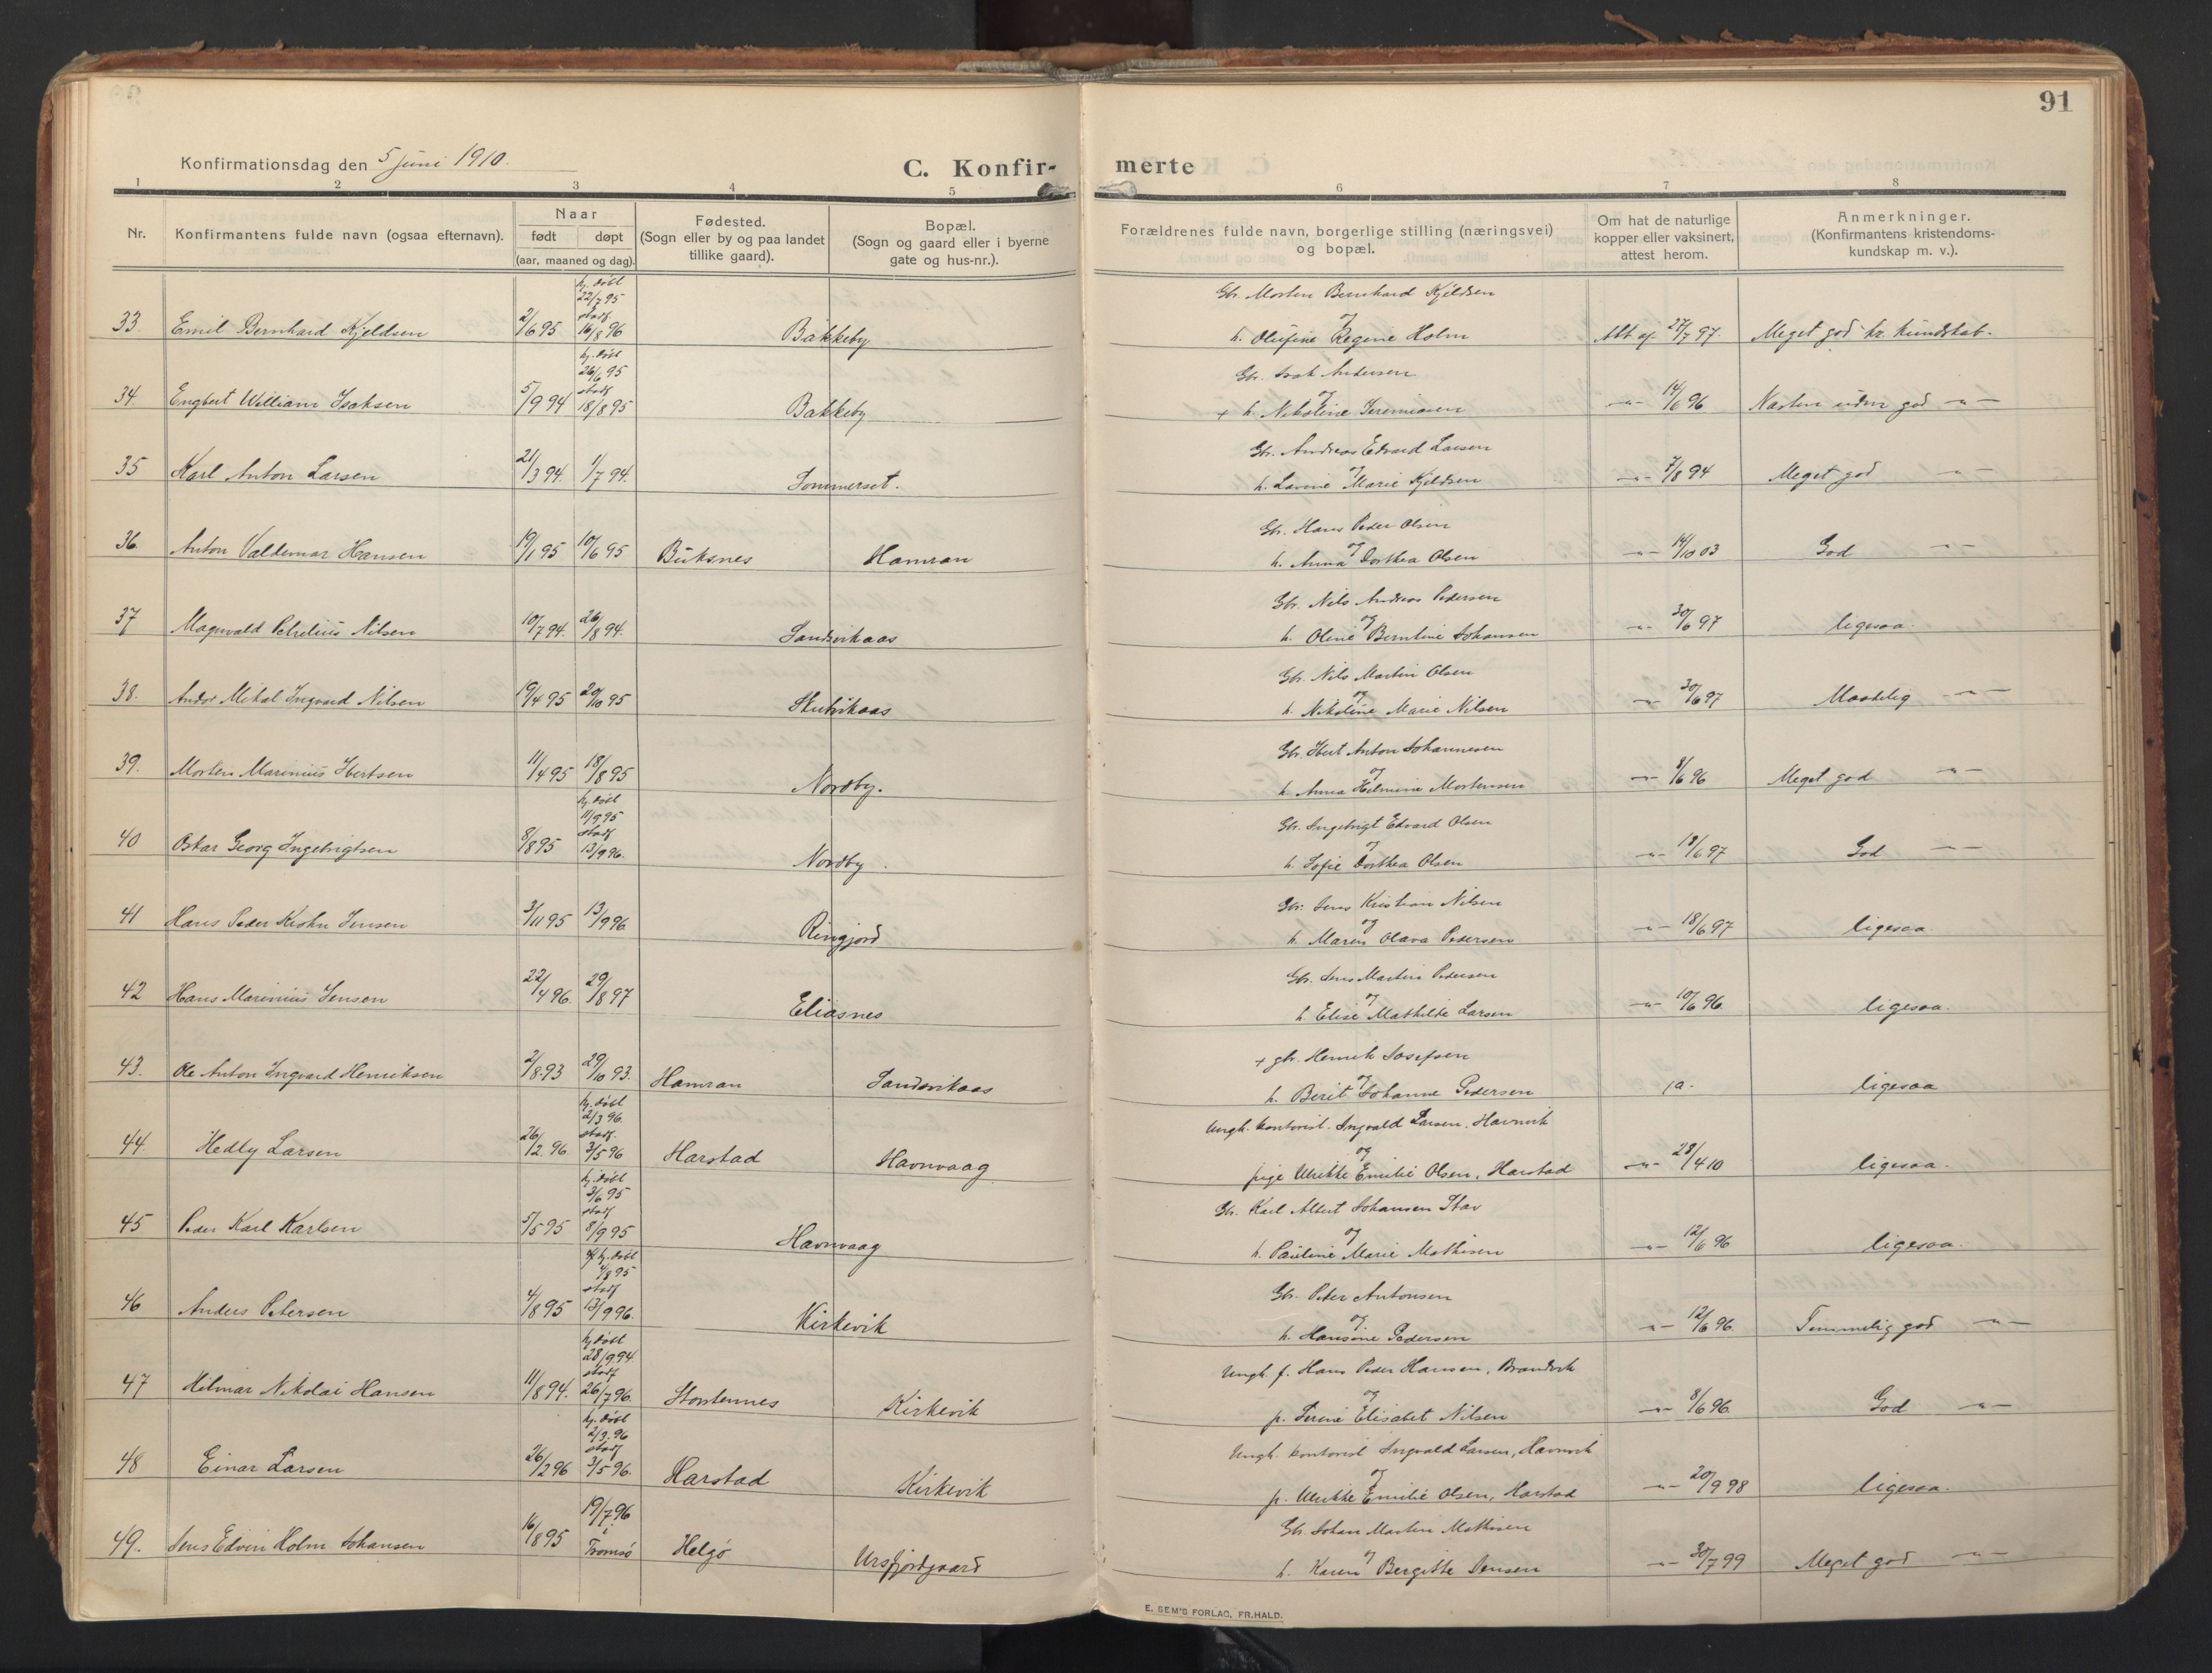 91
Konfirmationsdag den 5 juni 1910.
C. Konfirmerte
1 2 3 4 5 6 7 8
Nr.
Konfirmantens fulde navn (ogsaa efternavn).
Naar
født døpt
(aar, maaned og dag).
Fødested.
(Sogn eller by og paa landet
tillike gaard).
Bopæl.
(Sogn og gaard eller i byerne
gate og hus-nr.).
Forældrenes fulde navn, borgerlige stilling (næringsvei)
og bopæl.
Om hat de naturlige
kopper eller vaksinert,
attest herom.
Anmerkninger.
(Konfirmantens kristendoms-
kundskap m. v.).
33. Emil Bernhard Kjeldsen 2/6 95 hj. døbt 22/7 95 stadf. 16/8 96 Bakkeby
Gbr. Morten Bernhard Kjeldsen
og
h. Olufine Regine Holm
Att af 27/7 97. Meget god kr. kundskab.
34. Engbert William Isaksen 5/9 94 hj. døbt 26/6 95 stadf 18/8 95 Bakkeby
Gbr. Isak Andersen
og
+ h. Nikoline Jeremiasen
-"- 14/6 96 Næsten uden god -"-
35 Karl Anton Larsen 21/3 94. 1/7 94. Sommerset.
Gbr. Andreas Edvard Larsen
og
h. Lavine Marie Kjeldsen
-"- 7/8 94 Meget god -"-
36. Anton Valdemar Hansen 19/1 95 10/6 95 Buksnes Hamran
Gbr. Hans Peder Olsen
og
h. Anna Dorthea Olsen
-"- 14/10 03 God -"-
37 Magnvald Petrelius Nilsen 10/7 94. 26/8 94. Sandvikaas
Gbr. Nils Andreas Pedersen
og
h. Oline Berntine Johansen
-"- 30/6 97 ligesaa.
38. Andor Mikal Ingvard Nilsen 19/4 95 20/10 95
Gbr. Nils Martin Olsen
og
h. Nikoline Marie Nilsen
-"- 30/6 97 Maadelig -"-
39. Morten Marinius Ibertsen 11/4 95 18/8 95 Nordby.
Gbr. Ibert Anton Johannesen
og
h. Anna Helmine Mortensen
-"- 8/6 96 Meget god -"-
40 Oskar Georg Ingebrigtsen 8/8 95 hj. døbt 11/9 95 stadf 13/9 96. Nordby.
Gbr. Ingebrigt Edvard Olsen
og
h. Sofie Dorthea Olsen
-"- 18/6 97 God -"-
41 Hans Peder Krohn Jensen 3/11 95 13/9 96 Ringjord
Gbr. Jens Kristian Nilsen
og
h. Maren Olava Pedersen
-"- 18/6 97 ligesaa.
42 Hans Marinius Jensen 22/4 96. 29/8 97 Eliasnes
Gbr. Jens Martin Pedersen
og
h. Elise Mathilde Larsen
-"- 10/6 96 ligesaa.
43. Ole Anton Ingvard Henriksen 2/8 93 29/10 93. Hamran Sandvikaas
+ gbr. Henrik Josefsen
og
h. Berit Johanne Pedersen
ja. ligesaa
44. Hedly Larsen 26/2 96. hj. døbt 2/3 96. stadf. 3/5 96 Harstad Havnvaag
Ungk. kontorist. Ingvald Larsen, Havnvik
og
pige Ulrikke Emilie Olsen, Harstad
-"- 28/4 10 ligesaa.
45 Peder Karl Karlsen 5/5 95 hj. døbt 3/6 95 stadf 8/9 95 Havnvaag
Gbr. Karl Albert Johansen Stav
og
h. Pauline Marie Mathisen
-"- 12/6 96 ligesaa.
46 Anders Petersen 4/8 95 hj. døbt 4/8 95 stadf 13/9 96. Kirkevik
Gbr. Peder Antonsen
og
h. Hansine Pedersen
-"- 12/6 96. Temmelig god -"-
47 Hilmar Nikolai Hansen 11/8 94. hj. døbt 28/9 94. stadf 26/7 96. Stortennes Kirkevik
Ungk. f. Hans Peder Hansen, Brandvik
og
p. Serine Elisabet Nilsen
-"- 8/6 96. God -"-
48 Einar Larsen 26/2 96 hj. døbt 2/3. 96 stadf 3/5 96. Harstad Kirkevik
Ungk. kontorist Ingvald Larsen, Havnvik
og
p. Ulrikke Emilie Olsen, Harstad
-"- 20/9 98 ligesaa.
49. Jens Edvin Holm Johansen 16/8 95 19/7 96 i Tromsø Helgø Ursfjordgaard
Gbr. Johan Martin Mathisen
og
h. Karen Bergitte Jensen
-"- 30/7 99 Meget god -"-
E. SEM'S FORLAG, FR.HALD.